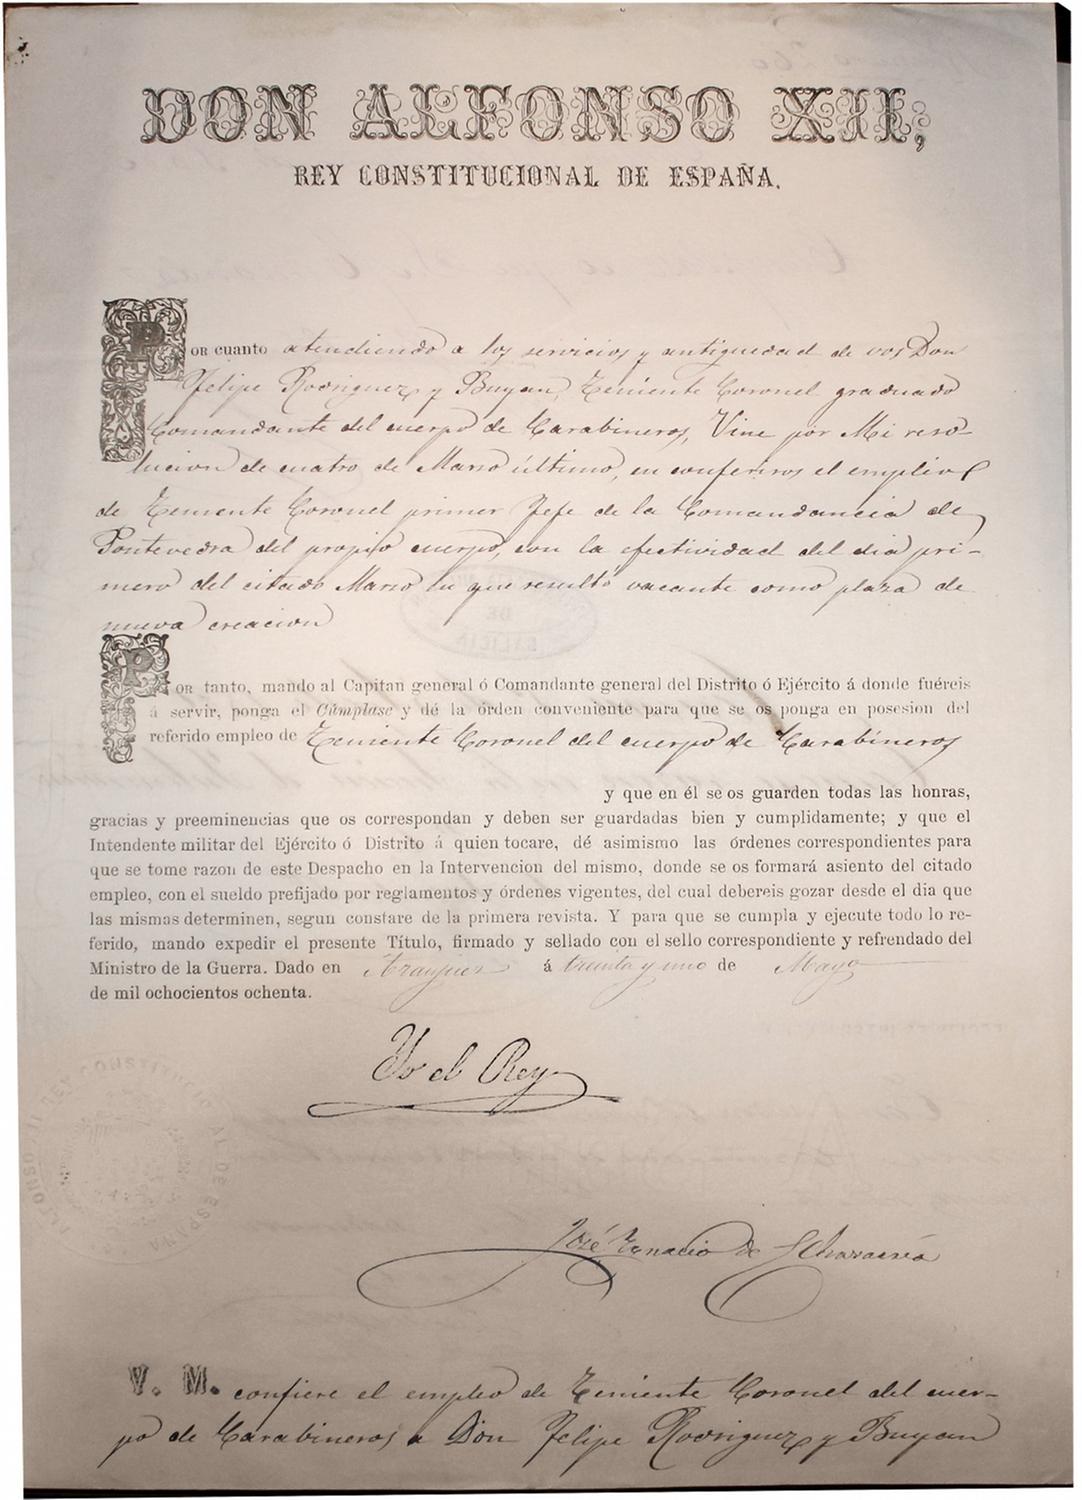 DON ALFONSO XII,
REY CONSTITUCIONAL DE ESPAÑA.
POR cuanto atendiendo a los servicios y antiguedad de vos Don
Felipe Rodriguez y Buyan, Teniente Coronel graduado
Comandante del cuerpo de Carabineros, Vine por Mi reso-
lucion de cuatro de Marzo último, en conferiros el empleo
de Teniente Coronel primer Jefe de la Comandancia de
Pontevedra del propio cuerpo, con la efectividad del dia pri-
mero del citado Marzo en que resultó vacante como plaza de
nueva creacion
POR tanto, mando al Capitan general ó Comandante general del Distrito ó Ejército á donde fuéreis
á servir, ponga el Cúmplase y dé la órden conveniente para que se os ponga en posesion del
referido empleo de Teniente Coronel del cuerpo de Carabineros
y que en él se os guarden todas las honras,
gracias y preeminencias que os correspondan y deben ser guardadas bien y cumplidamente; y que el
Intendente militar del Ejército ó Distrito á quien tocare, dé asimismo las órdenes correspondientes para
que se tome razon de este Despacho en la Intervencion del mismo, donde se os formará asiento del citado
empleo, con el sueldo prefijado por reglamentos y órdenes vigentes, del cual debereis gozar desde el dia que
las mismas determinen, segun constare de la primera revista. Y para que se cumpla y ejecute todo lo re-
ferido, mando expedir el presente Título, firmado y sellado con el sello correspondiente y refrendado del
Ministro de la Guerra. Dado en Aranjuez á treinta y uno de Mayo
de mil ochocientos ochenta.
Yo el Rey
ALFONSO XII REY CONSTITUCIONAL DE ESPAÑA
José Ignacio de Echavarría
V. M. confiere el empleo de Teniente Coronel del cuer-
po de Carabineros a Don Felipe Rodriguez y Buyan